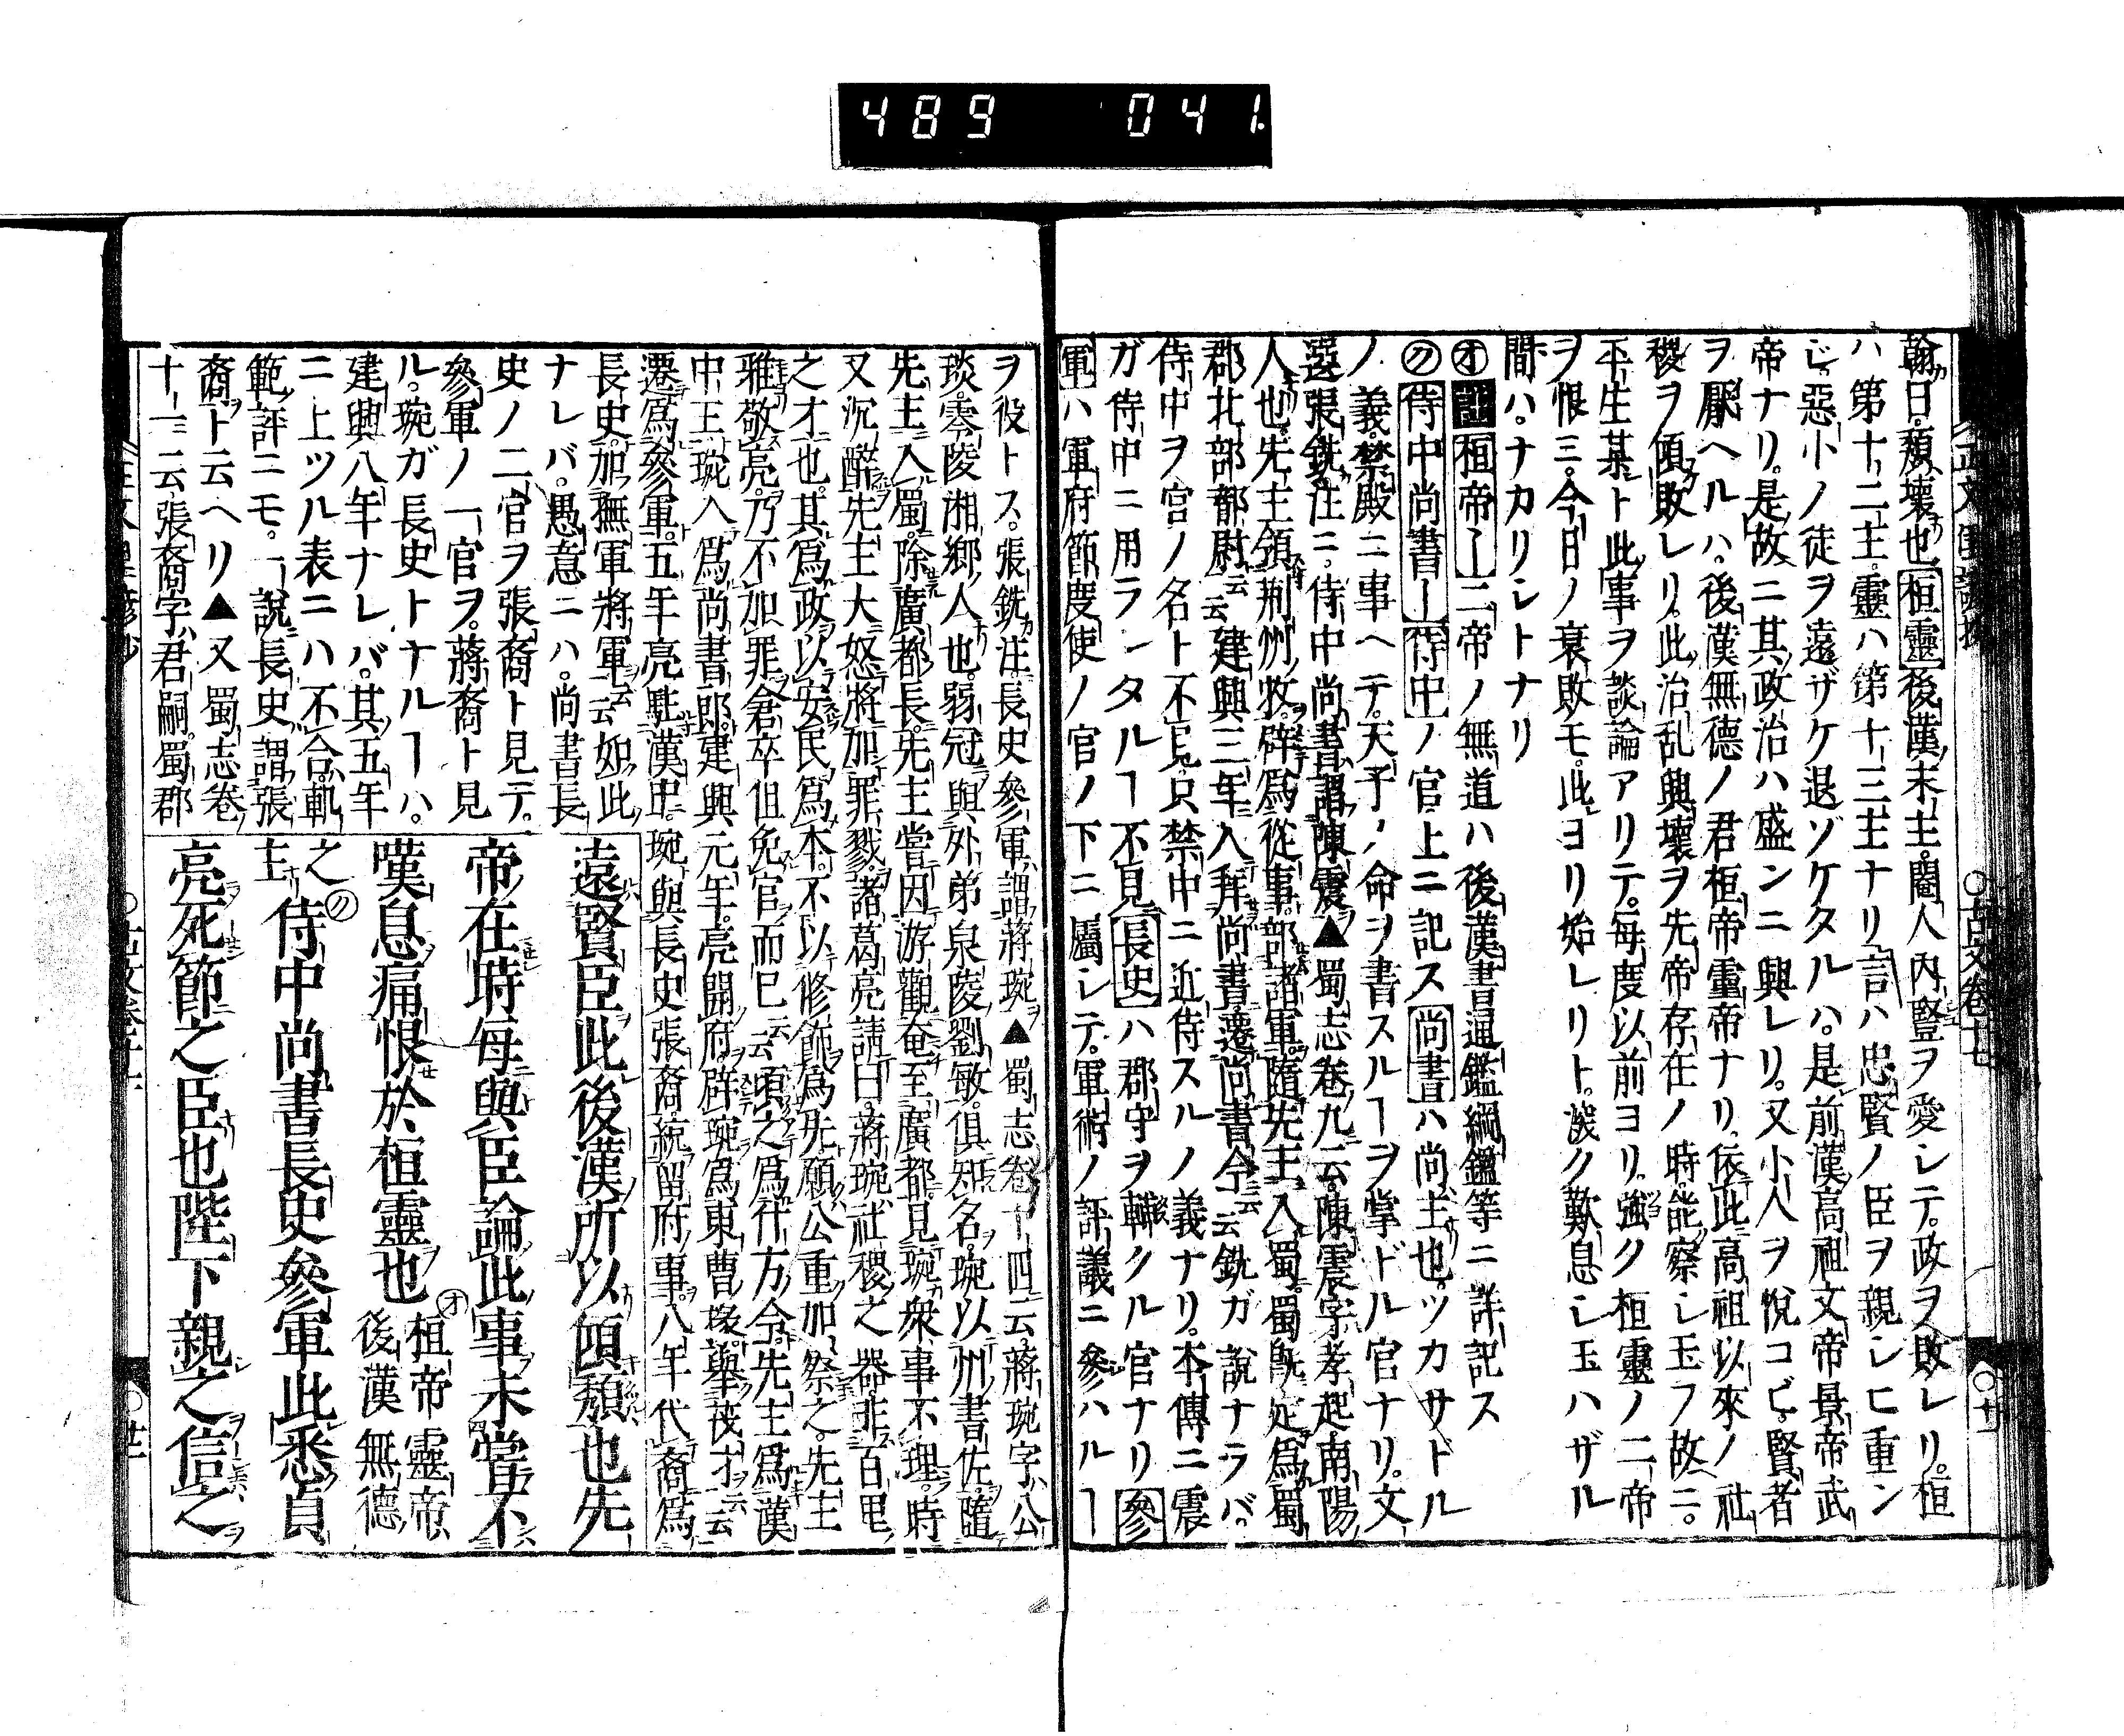 489 041.
翰曰頽壞也桓靈後漢末主閹人內豎ヲ愛シテ政ヲ敗レリ桓
ハ第十二主靈ハ第十三主ナリ言ハ忠賢ノ臣ヲ親シヒ重ン
ジ惡小ノ徒ヲ遠ザケ退ゾケタルハ是前漢高祖文帝景帝武
帝ナリ是故ニ其政治ハ盛ンニ興レリ又小人ヲ悅コビ賢者
ヲ厭ヘルハ後漢無德ノ君桓帝靈帝ナリ依此高祖以來ノ社
稷ヲ傾敗レリ此治乱興壞ヲ先帝存在ノ時能察シ玉フ故ニ
平生某ト此事ヲ談論アリテ每度以前ヨリ強ク桓靈ノ二帝
ヲ恨三今日ノ衰敗モ此ヨリ始レリト深ク歎息シ玉ハザル
間ハナカリシトナリ
オ註桓帝ー二帝ノ無道ハ後漢書通鑑綱鑑等ニ詳記ス
ノ侍中尚書ー侍中ノ官上ニ記ス尚書ハ尚主也ツカサドル
ノ義禁殿ニ事ヘテ天子ノ命ヲ書スルヿヲ掌ドル官ナリ文
選張銑注ニ侍中尚書謂陳震▲蜀志卷九云陳震字孝起南陽
人也先主領荊州牧辟爲從事部諸軍隨先主入蜀蜀既定爲蜀
郡北部都尉云云建興三年入拜尚書遷尚書令云云銑ガ說ナラバ
侍中ヲ官ノ名ト不見只禁中ニ近侍スルノ義ナリ本傳ニ震
ガ侍中ニ用ラレタルヿ不見長史ハ郡守ヲ輔クル官ナリ參
軍ハ軍府節度使ノ官ノ下ニ屬シテ軍術ノ評議ニ參ハルヿ
ヲ役トス張銑注長史參軍謂蔣琬▲蜀志卷十四云蔣琬字公
琰零陵湘鄉人也弱冠與外弟泉陵劉敏俱知名琬以州書佐隨
先主入蜀除廣都長先主嘗因游觀奄至廣都見琬衆事不理時
又沉醉先主大怒將加罪戮諸葛亮請曰蔣琬社稷之器非百里
之才也其爲政以安民爲本不以修飾爲先願公重加察之先主
雅敬亮乃不加罪倉卒但免官而已云云頃之爲什方令先主爲漢
中王琬入爲尚書郎建興元年亮開府辟琬爲東曹掾舉茂才云云
遷爲參軍五年亮駐漢中琬與長史張裔統留府事八年代裔爲
長史加撫軍將軍云云如此
ナレバ愚意ニハ尚書長
史ノ二官ヲ張裔ト見テ
參軍ノ一官ヲ蔣裔ト見
ル琬ガ長史トナルヿハ
建興八年ナレバ其五年
ニ上ツル表ニハ不合軌
範評ニモ一說長史謂張
裔ト云ヘリ▲又蜀志卷
十一云張裔字君嗣蜀郡
遠賢臣此後漢所以頃頽也先
帝在時每與臣論此事未嘗不
嘆息痛恨於桓靈也オ桓帝靈帝後漢無德
之主ノ侍中尚書長史參軍此悉貞
亮死節之臣也陛下親之信之